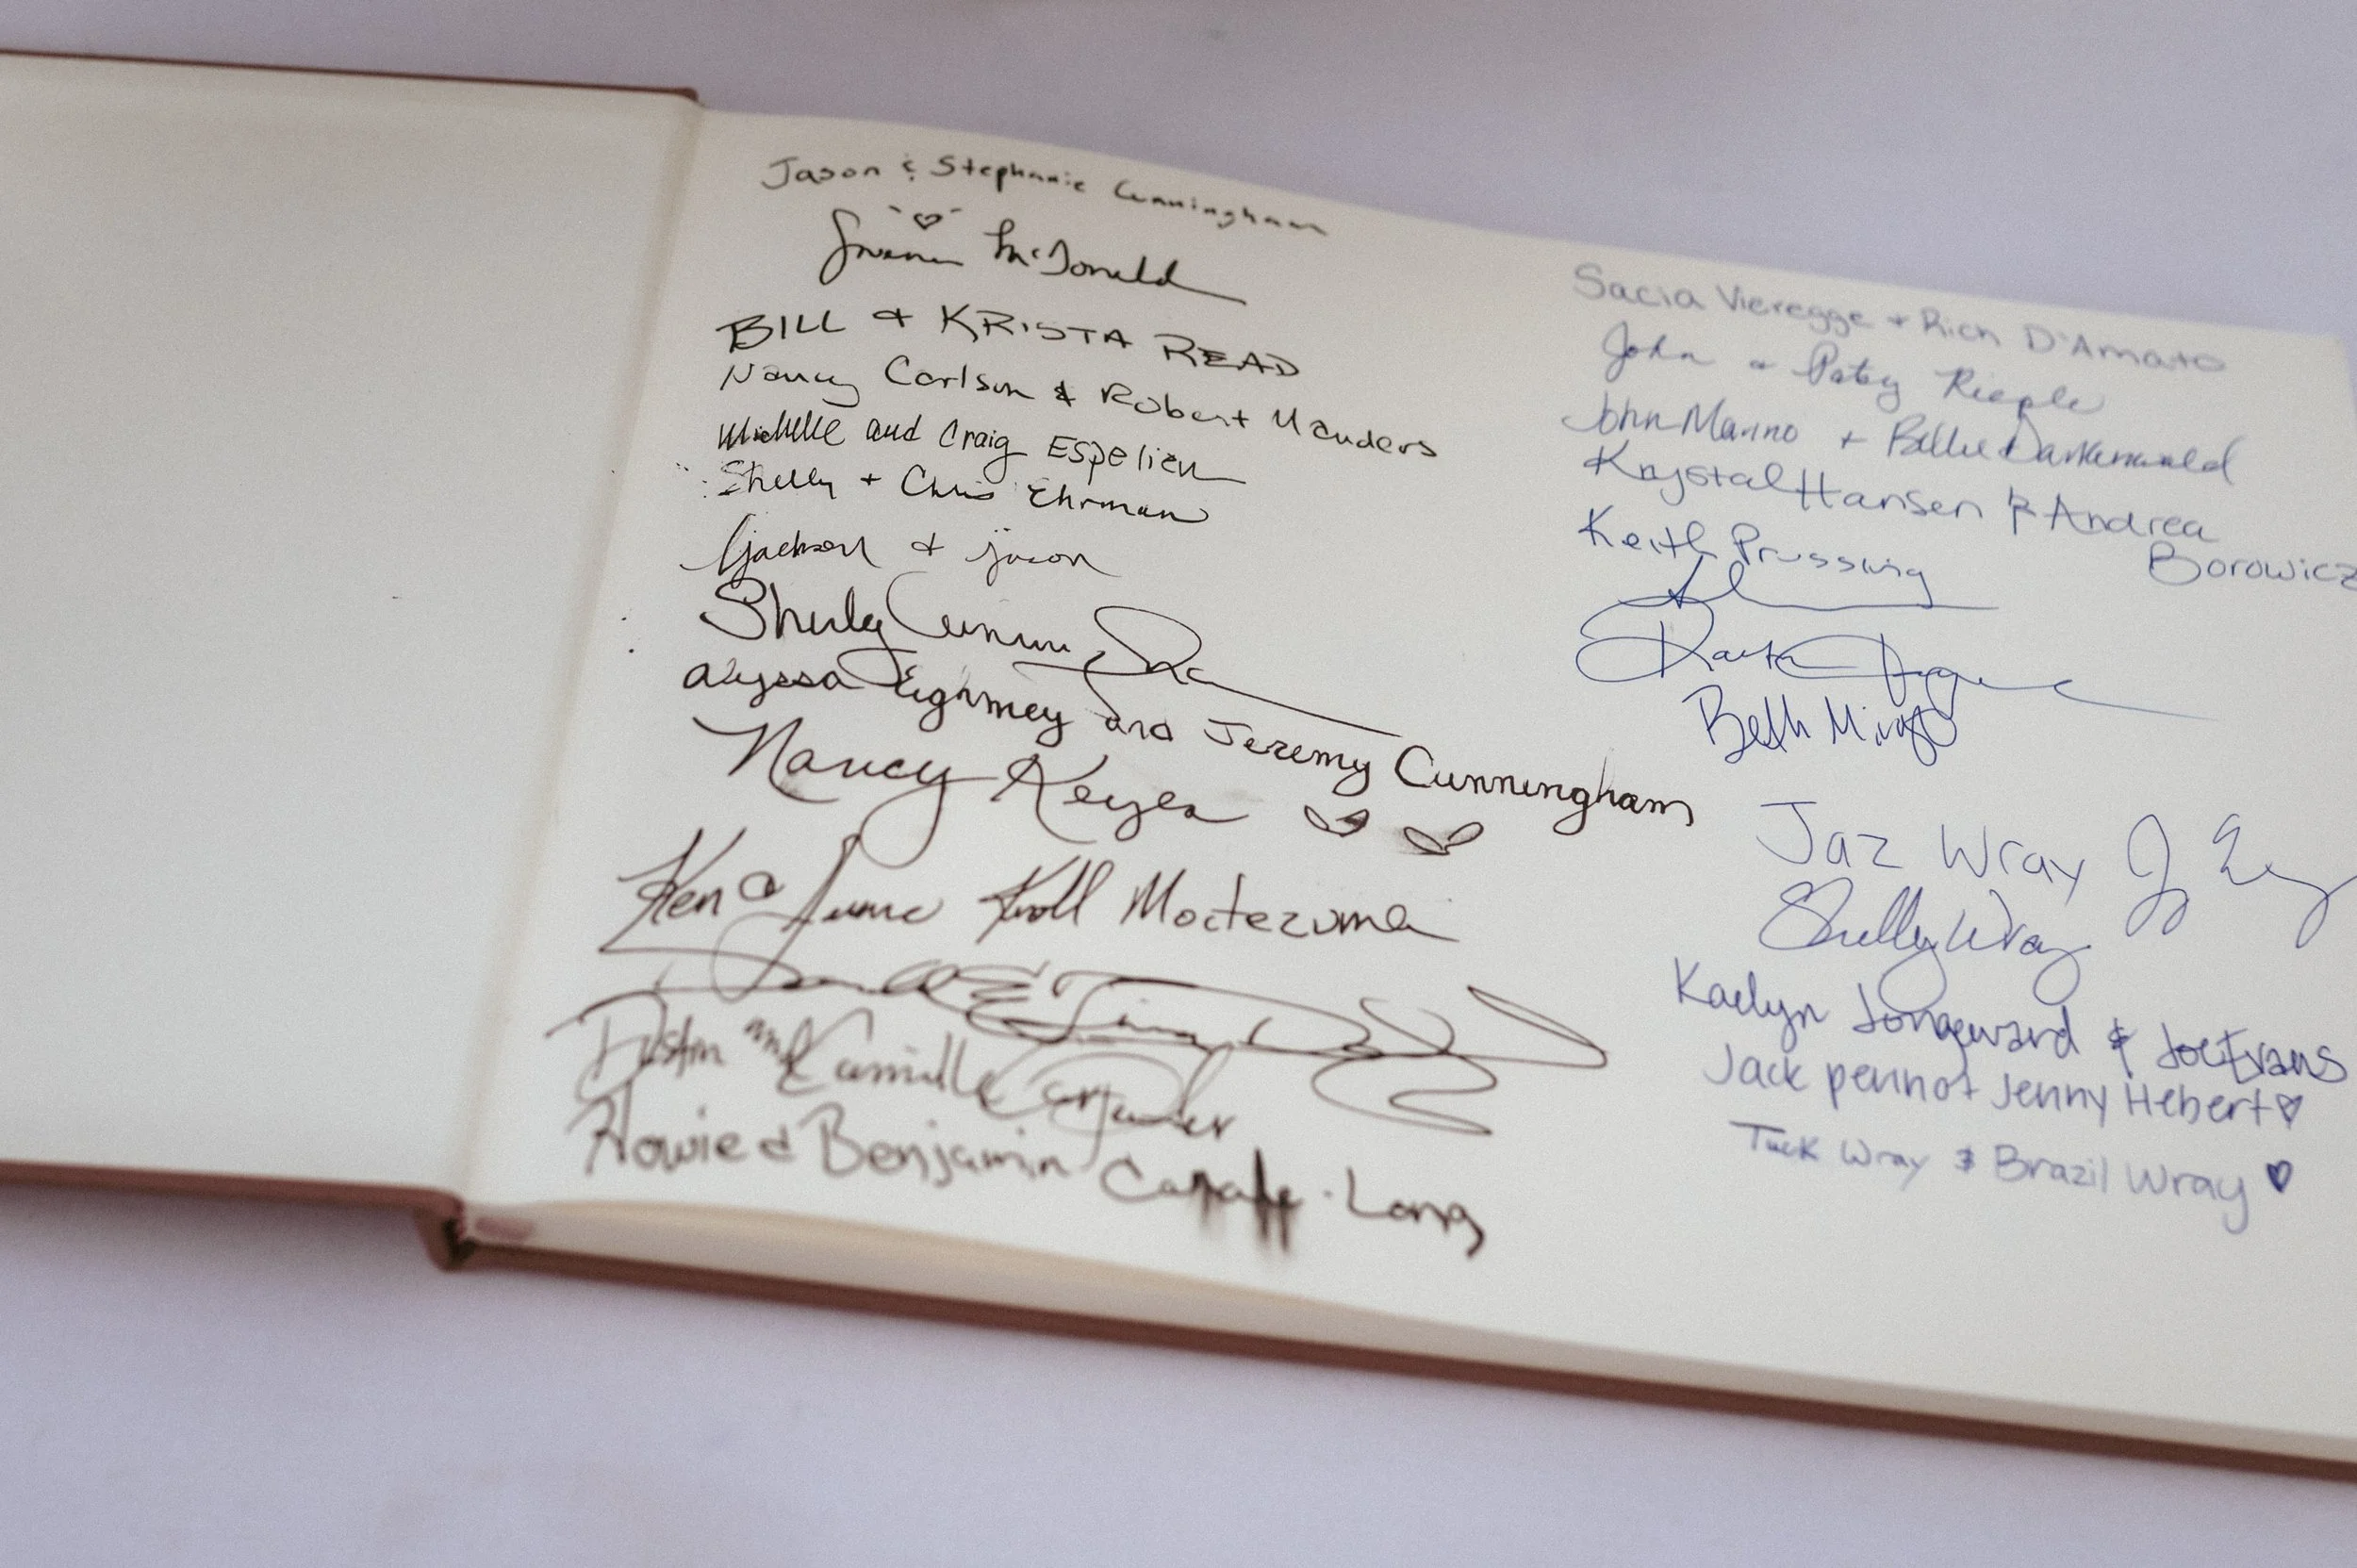 Jason & Stephanie Cunningham
McDonald
BILL & KRISTA READ
Nancy Carlson & Robert Manders
Michelle and Craig Espelien
Shelly + Chris Ehrman
Jackson & Jason
Alyssa Eighmey and Jeremy Cunningham
Nancy Keyes
Ken & Kroll Moctezuma
Dustin and Camille
Howie & Benjamin Long
Sacia Vieregge + Rich D'Amato
John & Patsy Rieple
John Marino + Billie Darkenwald
Krystal Hansen & Andrea
Borowicz
Keith Prussing
Beth
Jaz Wray
Shelly Wray
Kaelyn Longeward & Joe Evans
Jack pennot Jenny Hebert
Tuck Wray & Brazil Wray